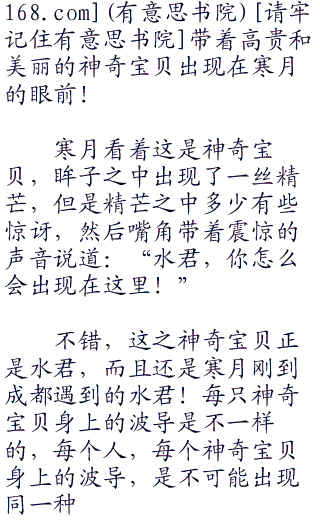 168.com](有意思书院)[请牢
记住有意思书院]带着高贵和
美丽的神奇宝贝出现在寒月
的眼前！
寒月看着这是神奇宝
贝，眸子之中出现了一丝精
芒，但是精芒之中多少有些
惊讶，然后嘴角带着震惊的
声音说道：“水君，你怎么
会出现在这里！”
不错，这之神奇宝贝正
是水君，而且还是寒月刚到
成都遇到的水君！每只神奇
宝贝身上的波导是不一样
的，每个人，每个神奇宝贝
身上的波导，是不可能出现
同一种